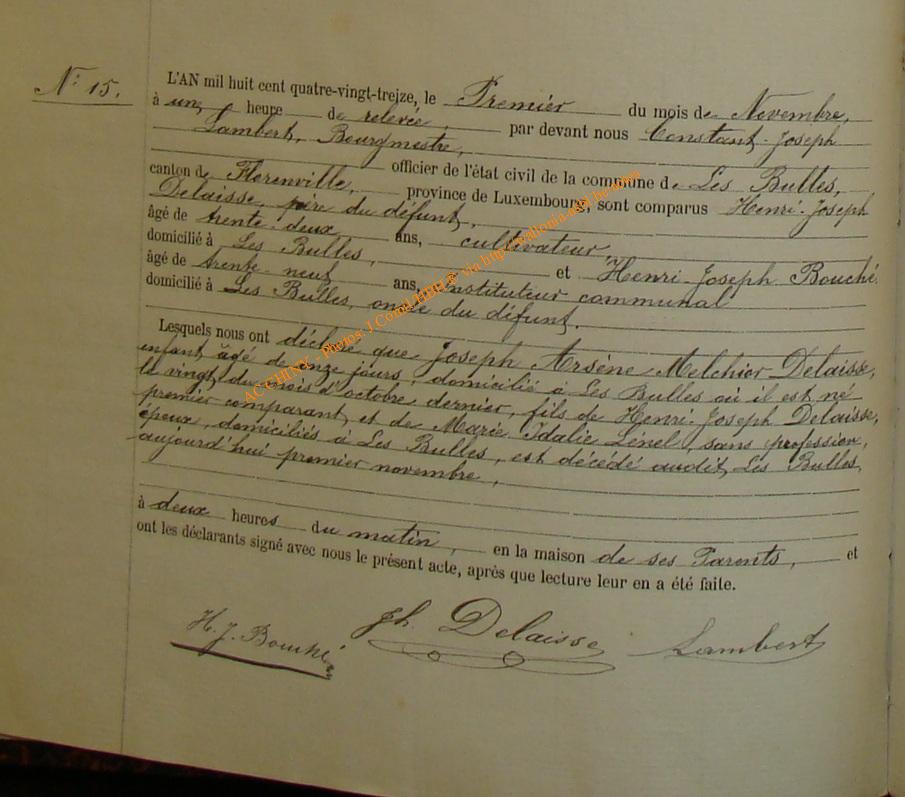 N° 15.
L'AN mil huit cent quatre-vingt-treize, le Premier du mois de Novembre,
à une heure de relevée, par devant nous Constant-Joseph
Lambert, Bourgmestre,
officier de l'état civil de la commune de Les Bulles,
canton de Florenville, province de Luxembourg, sont comparus Henri-Joseph
Delaisse, père du défunt,
âgé de trente-deux ans, cultivateur,
domicilié à Les Bulles, et Henri-Joseph Bouché,
âgé de trente-neuf ans, instituteur communal
domicilié à Les Bulles, oncle du défunt.
Lesquels nous ont déclaré que Joseph Arsène Melchior Delaisse,
enfant, âgé de onze jours, domicilié à Les Bulles où il est né
le vingt du mois d'octobre dernier, fils de Henri-Joseph Delaisse,
premier comparant, et de Marie Idalie Lenel, sans profession,
époux, domiciliés à Les Bulles, est décédé audit Les Bulles,
aujourd'hui premier novembre,
à deux heures du matin, en la maison de ses Parents, et
ont les déclarants signé avec nous le présent acte, après que lecture leur en a été faite.
H. J. Bouché Jh. Delaisse Lambert
AC CHINY - Photos: J Collard via http://wallonia-asbl.be